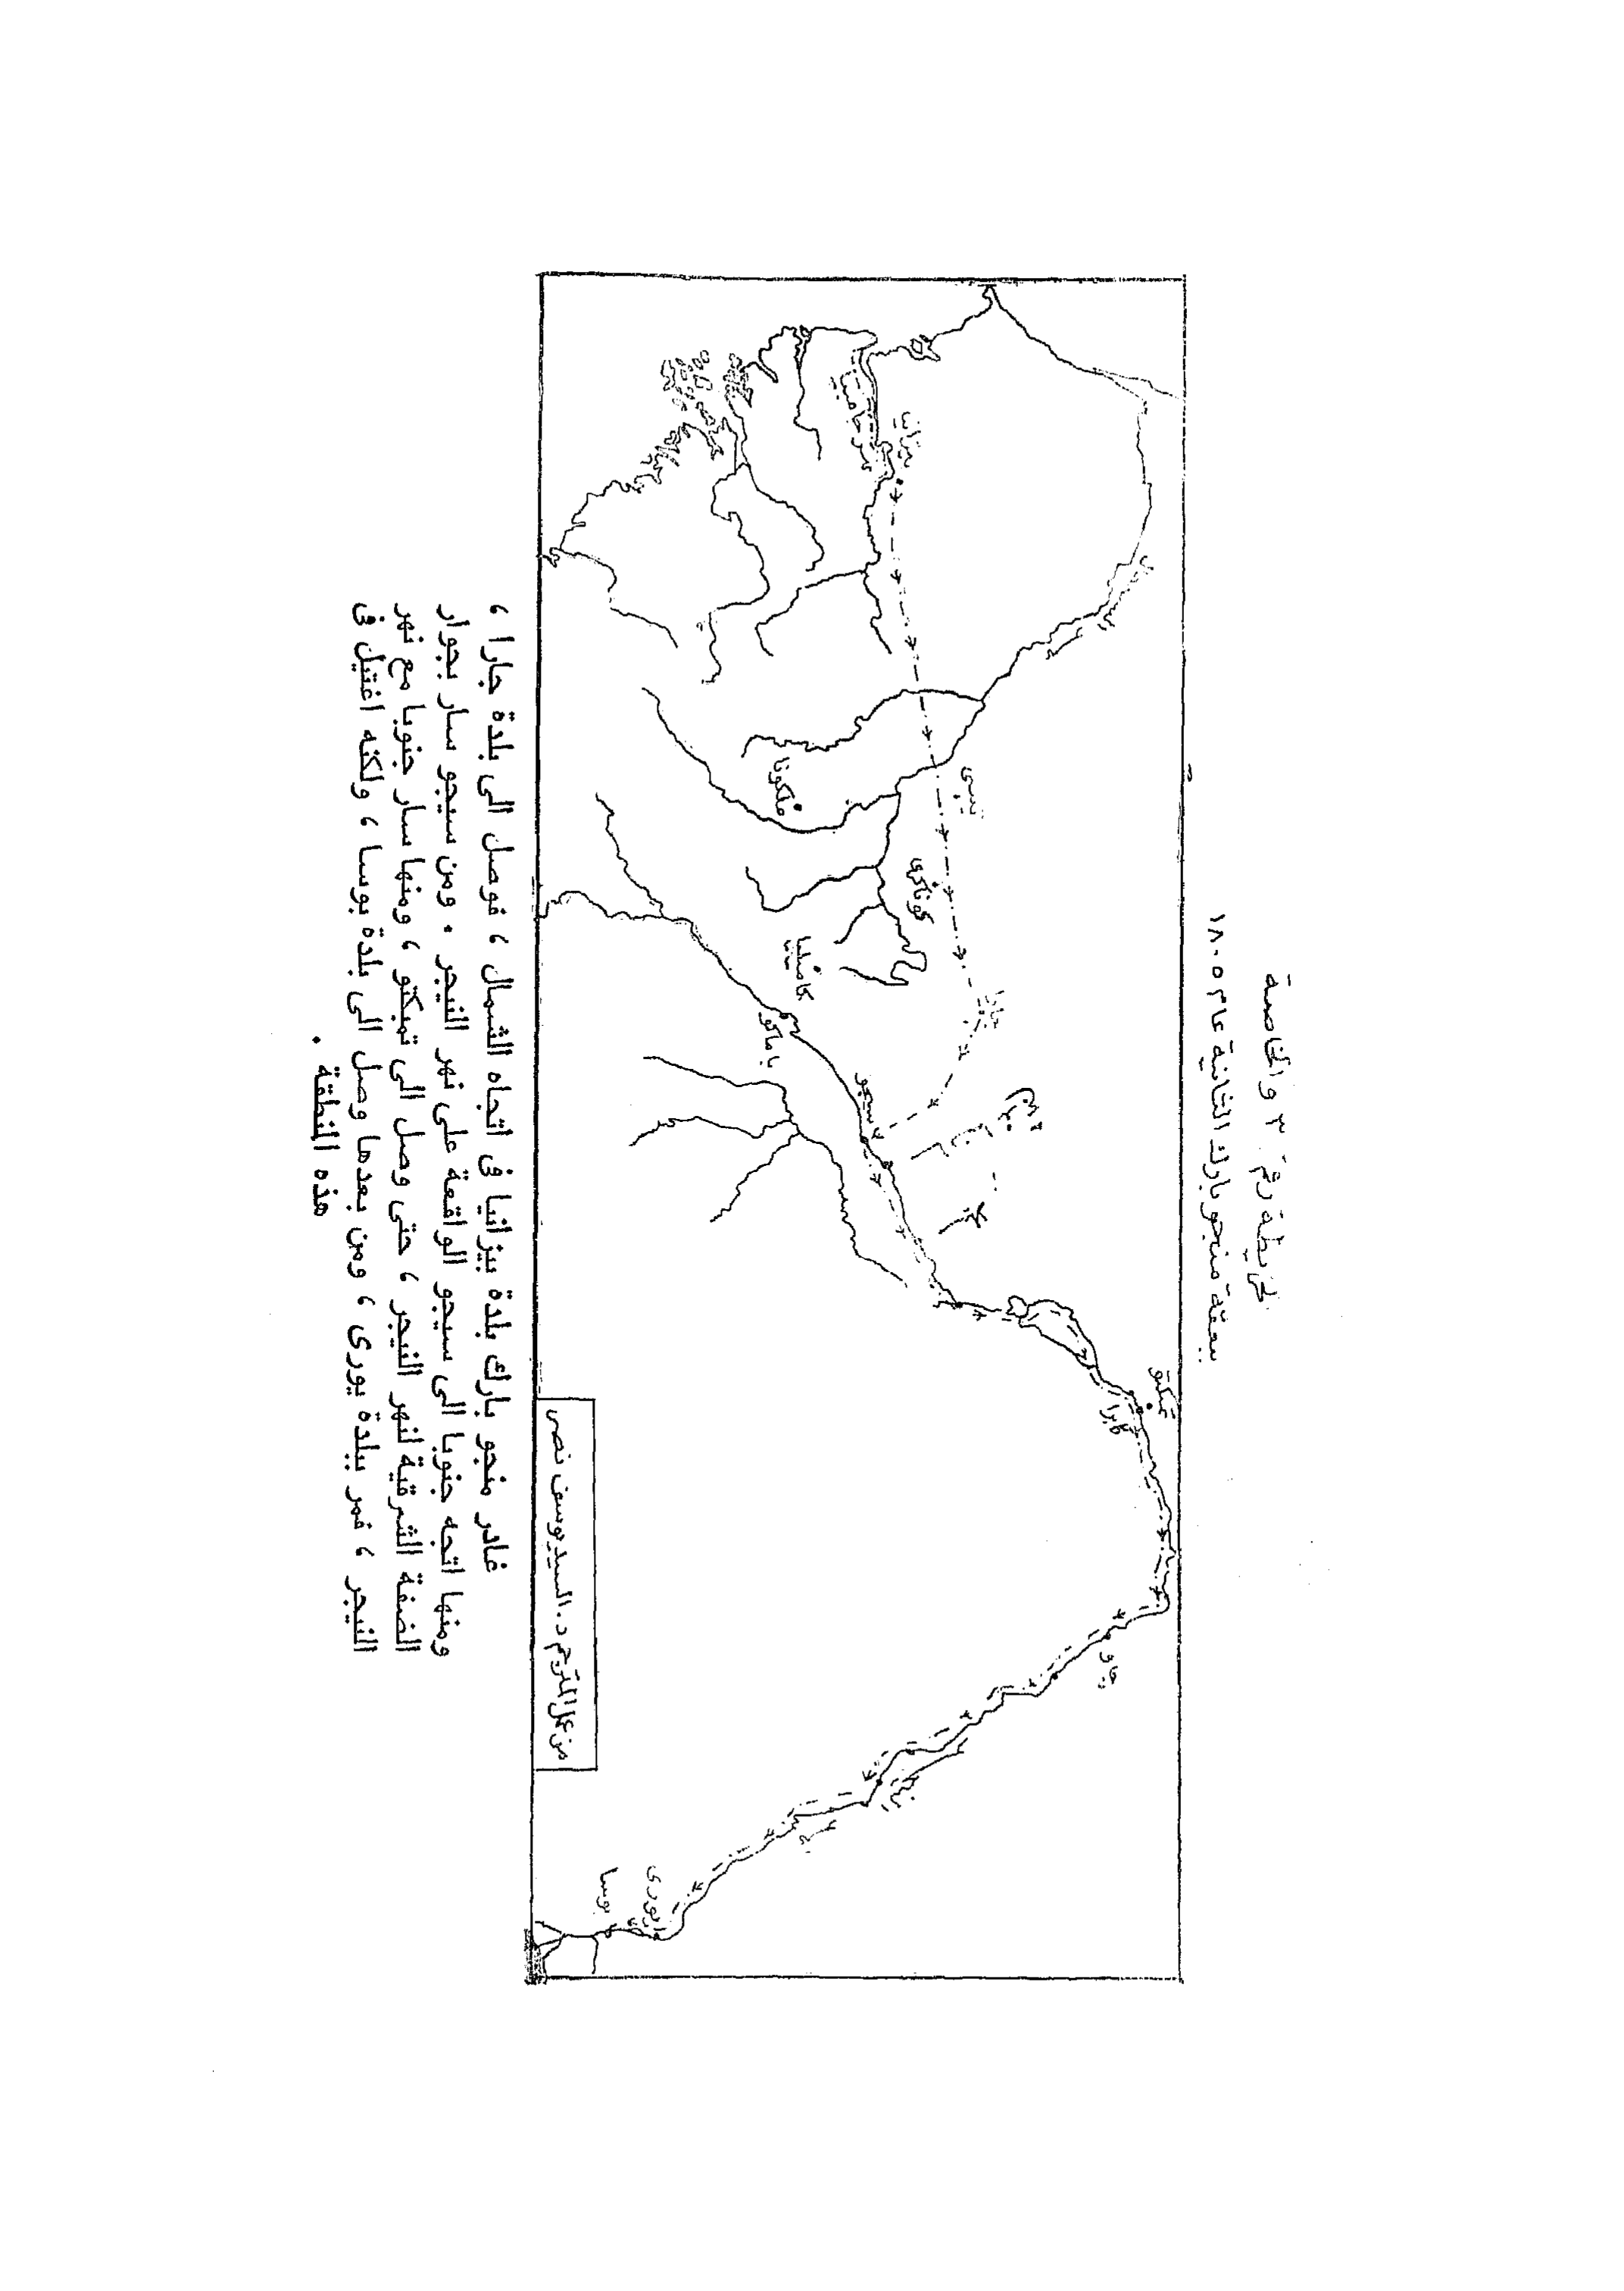 خريطة رقم ٣ والخاصة
ببعثة منجو بارك الثانية عام ١٨٠٥م
تمبكتو
كابرا
جاو
جارا
سيجو
كوناكرى
تيسى
بيزانيا
نهر جامبيا
ملكونا
كاميليا
باماكو
يورى
بوسا
من عمل المترجم د. السيد يوسف نصر
غادر منجو بارك بلدة بيزانيا فى اتجاه الشمال ، فوصل الى بلدة جارا ،
ومنها اتجه جنوبا الى سيجو الواقعة على نهر النيجر . ومن سيجو سار بجوار
الضفة الشرقية لنهر النيجر ، حتى وصل الى تمبكتو ، ومنها سار جنوبا مع نهر
النيجر ، فمر ببلدة يورى ، ومن بعدها وصل الى بلدة بوسا ، ولكنه اغتيل فى
هذه المنطقة .